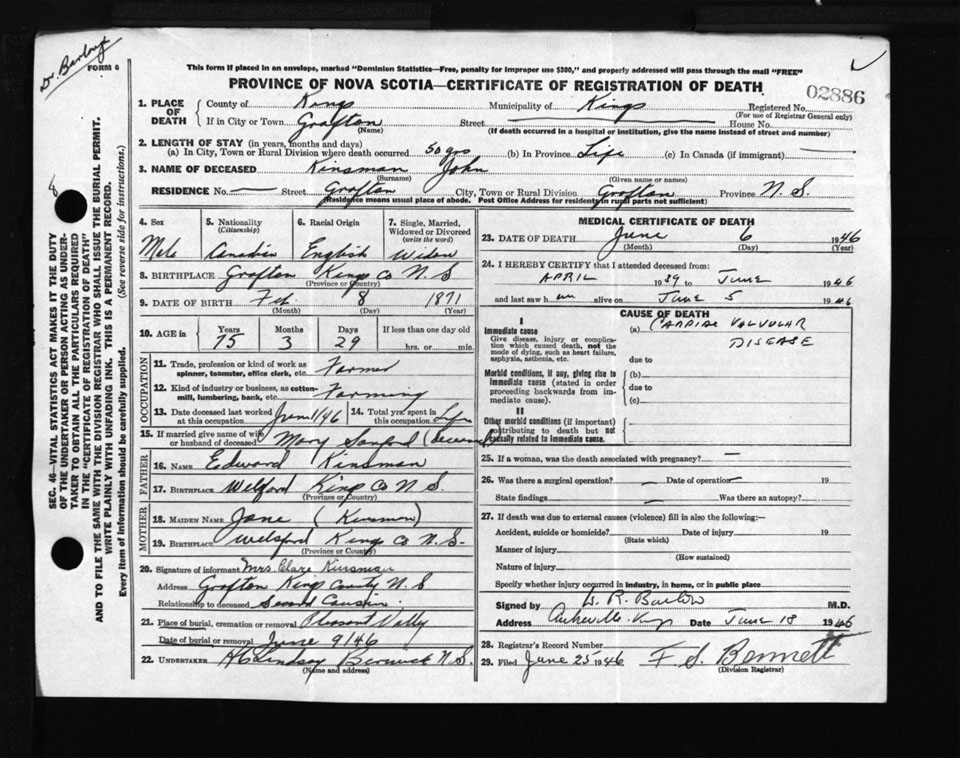 Dr. Barlow
FORM 6
This form if placed in an envelope, marked "Dominion Statistics—Free, penalty for improper use $300," and properly addressed will pass through the mail "FREE"
PROVINCE OF NOVA SCOTIA—CERTIFICATE OF REGISTRATION OF DEATH
02886
1. PLACE OF DEATH County of Kings Municipality of Kings Registered No.
(For use of Registrar General only)
If in City or Town Grafton Street House No.
(Name) (If death occurred in a hospital or institution, give the name instead of street and number)
2. LENGTH OF STAY (in years, months and days)
(a) In City, Town or Rural Division where death occurred 50 yrs (b) In Province Life (c) In Canada (if immigrant)
3. NAME OF DECEASED Kinsman John
(Surname) (Given name or names)
RESIDENCE No. — Street Grafton City, Town or Rural Division Grafton Province N. S.
(Residence means usual place of abode. Post Office Address for residents in rural parts not sufficient)
4. Sex 5. Nationality (Citizenship) 6. Racial Origin 7. Single, Married, Widowed or Divorced (write the word)
Male Canadian English Widow
8. BIRTHPLACE Grafton Kings Co N S
(Province or Country)
9. DATE OF BIRTH Feb 8 1871
(Month) (Day) (Year)
10. AGE in Years Months Days If less than one day old
75 3 29 hrs. or min.
OCCUPATION
11. Trade, profession or kind of work as spinner, teamster, office clerk, etc. Farmer
12. Kind of industry or business, as cotton-mill, lumbering, bank, etc. Farming
13. Date deceased last worked at this occupation June 1/46 14. Total yrs. spent in this occupation Life
15. If married give name of wife or husband of deceased Mary Sanford (deceased)
FATHER
16. NAME Edward Kinsman
17. BIRTHPLACE Welford Kings Co N. S.
(Province or Country)
MOTHER
18. MAIDEN NAME Jane (Kinsman)
19. BIRTHPLACE Welsford Kings Co N. S.
(Province or Country)
20. Signature of informant Mrs. Claze Kinsman
Address Grafton Kings County N S
Relationship to deceased Second Cousin
21. Place of burial, cremation or removal Pleasant Valley
Date of burial or removal June 9/46
22. UNDERTAKER Lindsay Berwick N. S.
(Name and address)
MEDICAL CERTIFICATE OF DEATH
23. DATE OF DEATH June 6 1946
(Month) (Day)
24. I HEREBY CERTIFY that I attended deceased from:
APRIL 1939 to June 1946
and last saw him alive on June 5 1946
CAUSE OF DEATH
I
Immediate cause
Give disease, injury or complication which caused death, not the mode of dying, such as heart failure, asphyxia, asthenia, etc.
(a) CARDIAC VALVULAR
DISEASE
due to
Morbid conditions, if any, giving rise to immediate cause (stated in order proceeding backwards from immediate cause).
(b)
due to
(c)
II
Other morbid conditions (if important) contributing to death but not causally related to immediate cause.
25. If a woman, was the death associated with pregnancy? —
26. Was there a surgical operation? — Date of operation — 19
State findings — Was there an autopsy?
27. If death was due to external causes (violence) fill in also the following:—
Accident, suicide or homicide? Date of injury 19
(State which)
Manner of injury
(How sustained)
Nature of injury
Specify whether injury occurred in industry, in home, or in public place
Signed by M.D.
Address Date June 18 1946
28. Registrar's Record Number
29. Filed June 25 1946 F. S. Bennett
(Division Registrar)
8
SEC. 46—VITAL STATISTICS ACT MAKES IT THE DUTY
OF THE UNDERTAKER OR PERSON ACTING AS UNDER-
TAKER TO OBTAIN ALL THE PARTICULARS REQUIRED
IN THE "CERTIFICATE OF REGISTRATION OF DEATH"
AND TO FILE THE SAME WITH THE DIVISION REGISTRAR WHO SHALL ISSUE THE BURIAL PERMIT.
WRITE PLAINLY WITH UNFADING INK. THIS IS A PERMANENT RECORD.
Every item of information should be carefully supplied. (See reverse side for instructions.)